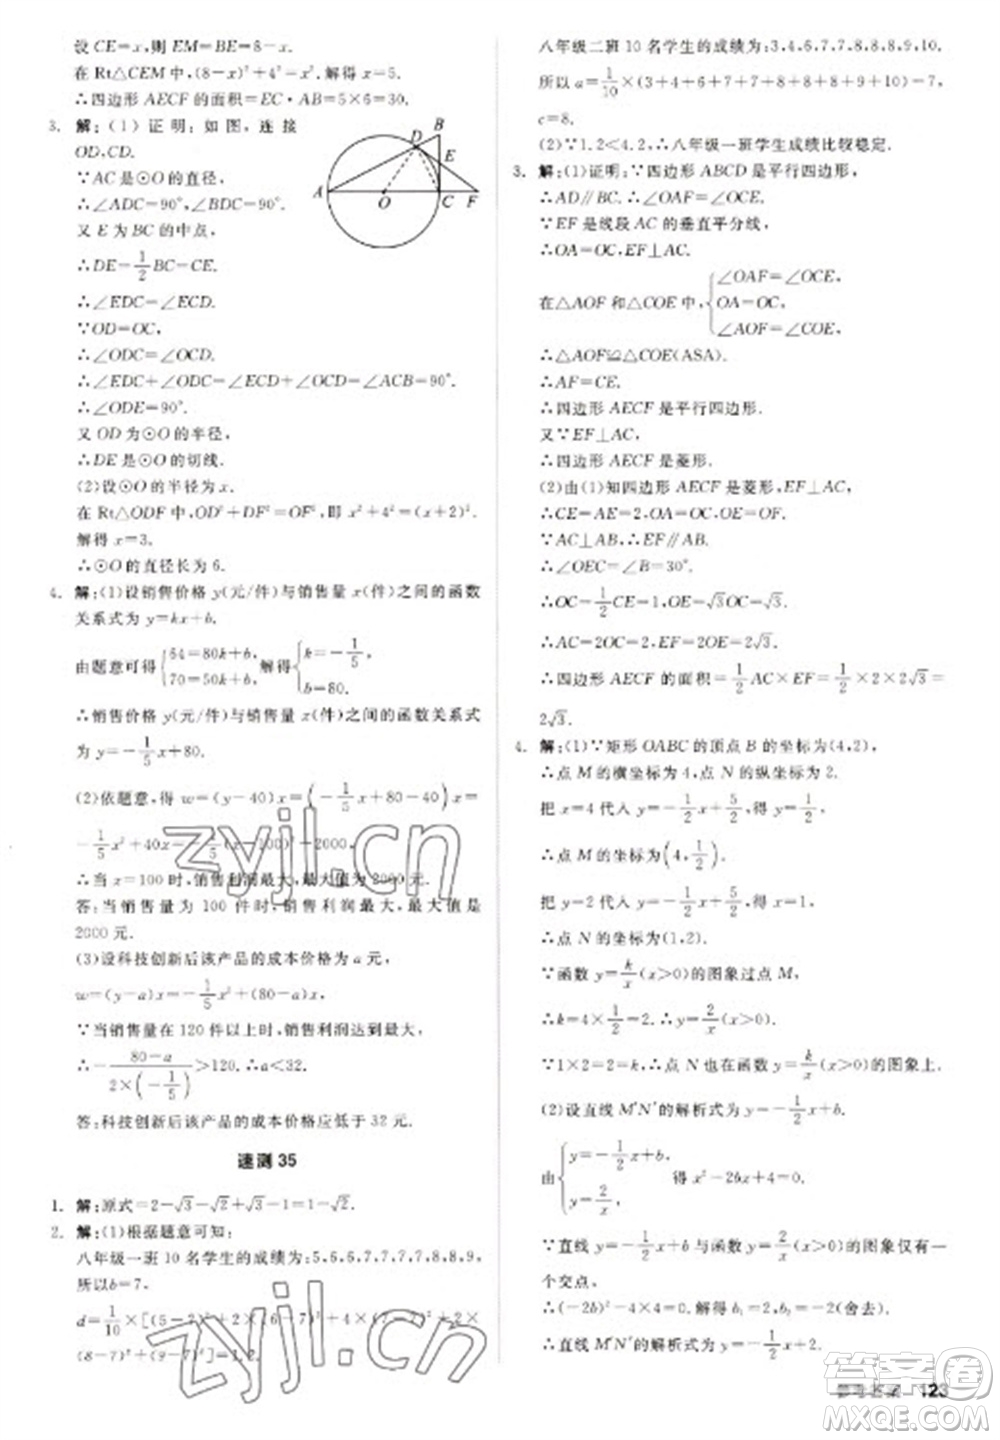 设 CE=x,则 EM=BE=8-x.
在 Rt△CEM 中,(8-x)²+4²=x².解得 x=5.
∴四边形 AECF 的面积=EC·AB=5×6=30.
3. 解:(1) 证明:如图,连接
OD,CD.
∵AC 是⊙O 的直径,
∴∠ADC=90°,∠BDC=90°.
又 E 为 BC 的中点,
∴DE=1/2BC=CE.
∴∠EDC=∠ECD.
∵OD=OC,
∴∠ODC=∠OCD.
∴∠EDC+∠ODC=∠ECD+∠OCD=∠ACB=90°.
∴∠ODE=90°.
又 OD 为⊙O 的半径,
∴DE 是⊙O 的切线.
(2)设⊙O 的半径为 x.
在 Rt△ODF 中,OD²+DF²=OF²,即 x²+4²=(x+2)².
解得 x=3.
∴⊙O 的直径长为 6.
A O C F D B E
4. 解:(1)设销售价格 y(元/件)与销售量 x(件)之间的函数
关系式为 y=kx+b.
由题意可得{64=80k+b, 70=50k+b. 解得{k=-1/5, b=80.
∴销售价格 y(元/件)与销售量 x(件)之间的函数关系式
为 y=-1/5x+80.
(2)依题意,得 w=(y-40)x=(-1/5x+80-40)x=
-1/5x²+40x=-1/5(x-100)²+2000.
∴当 x=100 时,销售利润最大,最大值为 2000 元.
答:当销售量为 100 件时,销售利润最大,最大值是
2000 元.
(3)设科技创新后该产品的成本价格为 a 元,
w=(y-a)x=-1/5x²+(80-a)x.
∵当销售量在 120 件以上时,销售利润达到最大,
∴-(80-a)/(2×(-1/5))>120.∴a<32.
答:科技创新后该产品的成本价格应低于 32 元.
速测 35
1. 解:原式=2-√3-√2+√3-1=1-√2.
2. 解:(1)根据题意可知:
八年级一班 10 名学生的成绩为:5,6,6,7,7,7,7,8,8,9,
所以 b=7,
d=1/10×[(5-7)²+2×(6-7)²+4×(7-7)²+2×
(8-7)²+(9-7)²]=1.2.
八年级二班 10 名学生的成绩为:3,4,6,7,7,8,8,8,9,10,
所以 a=1/10×(3+4+6+7+7+8+8+8+9+10)=7,
c=8.
(2)∵1.2<4.2,∴八年级一班学生成绩比较稳定.
3. 解:(1)证明:∵四边形 ABCD 是平行四边形,
∴AD∥BC.∴∠OAF=∠OCE.
∵EF 是线段 AC 的垂直平分线,
∴OA=OC,EF⊥AC.
在△AOF 和△COE 中,{∠OAF=∠OCE, OA=OC, ∠AOF=∠COE,
∴△AOF≌△COE(ASA).
∴AF=CE.
∴四边形 AECF 是平行四边形.
又∵EF⊥AC,
∴四边形 AECF 是菱形.
(2)由(1)知四边形 AECF 是菱形,
∴CE=AE=2,AC⊥OE.
∵AC⊥AB,∴EF∥AB.
∴∠OEC=∠B=30°.
∴OC=1/2CE=1,OE=√3OC=√3.
∴AC=2OC=2,EF=2OE=2√3.
∴四边形 AECF 的面积=1/2AC×EF=1/2×2×2√3=
2√3.
4. 解:(1)∵矩形 OABC 的顶点 B 的坐标为(4,2),
∴点 M 的横坐标为 4,点 N 的纵坐标为 2.
把 x=4 代入 y=-1/2x+5/2,得 y=1/2.
∴点 M 的坐标为(4,1/2).
把 y=2 代入 y=-1/2x+5/2,得 x=1.
∴点 N 的坐标为(1,2).
∵函数 y=k/x(x>0)的图象过点 M,
∴k=4×1/2=2.∴y=2/x(x>0).
∵1×2=2=k,∴点 N 也在函数 y=k/x(x>0)的图象上.
(2)设直线 M′N′的解析式为 y=-1/2x+b.
由{y=-1/2x+b, y=2/x, 得 x²-2bx+4=0.
∵直线 y=-1/2x+b 与函数 y=2/x(x>0)的图象仅有一
个交点,
∴(-2b)²-4×4=0.解得 b₁=2,b₂=-2(舍去).
∴直线 M′N′的解析式为 y=-1/2x+2.
参考答案 123
zyjl.cn
zyjl.cn
答案圈
MXQE.COM